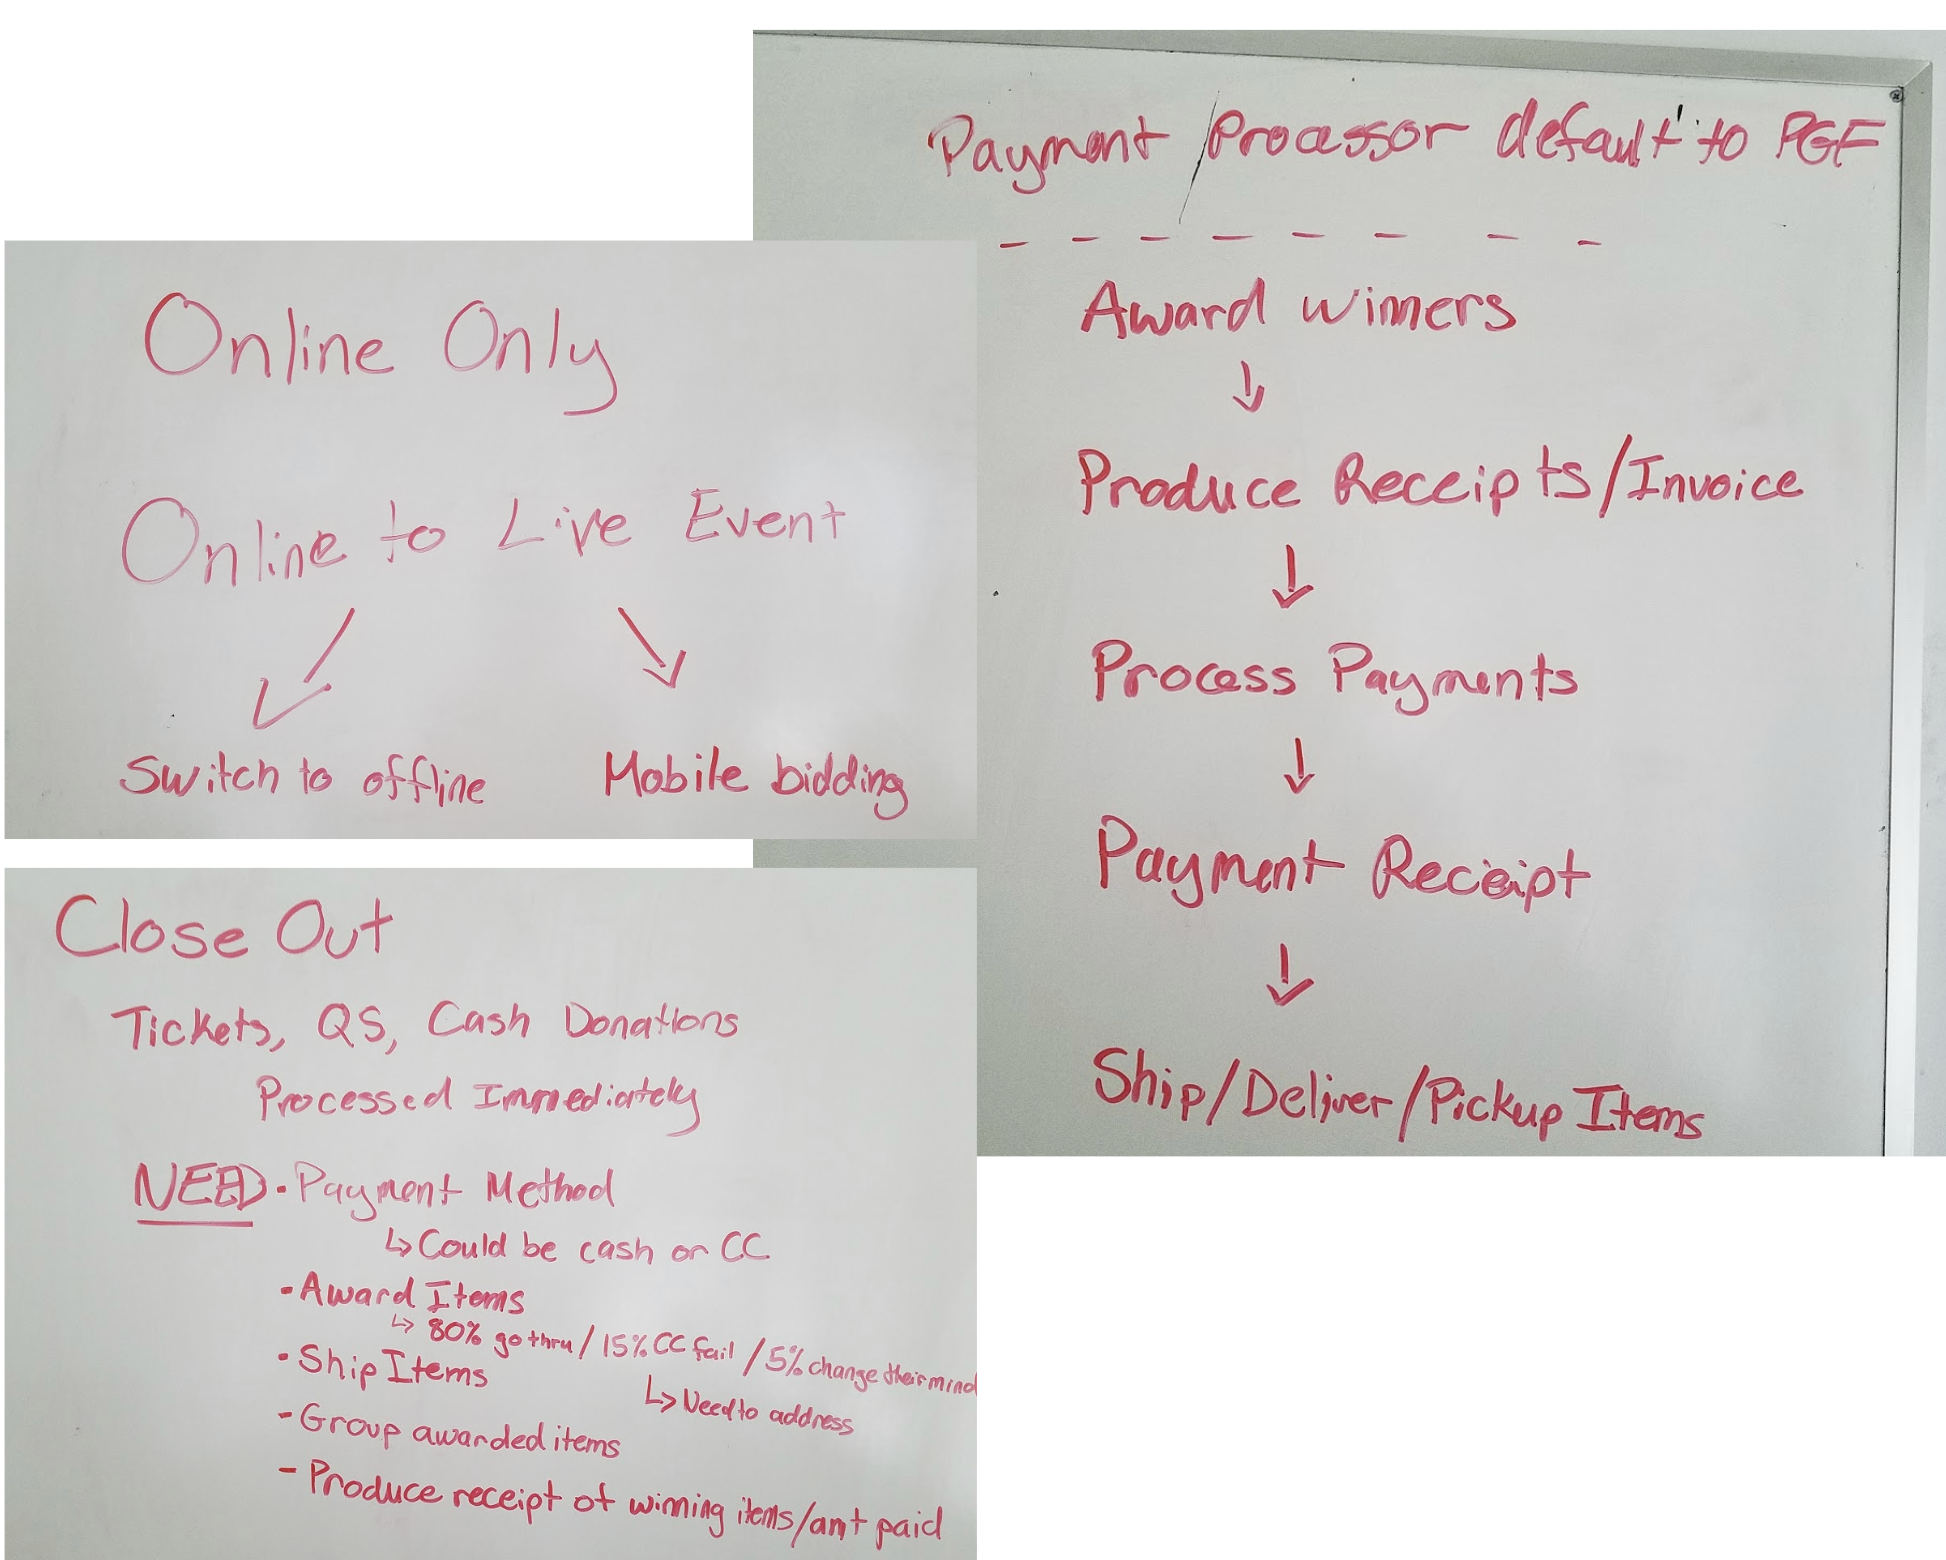 Payment Processor default to PGF
Award winners
↓
Produce Receipts/Invoice
↓
Process Payments
↓
Payment Receipt
↓
Ship/Deliver/Pickup Items
Online Only
Online to Live Event
Switch to offline
Mobile bidding
Close Out
Tickets, QS, Cash Donations
Processed Immediately
NEED · Payment Method
↳ Could be cash or CC
- Award Items
↳ 80% go thru / 15% CC fail / 5% change their mind
↳ Need to address
- Ship Items
- Group awarded items
- Produce receipt of winning items/amt paid